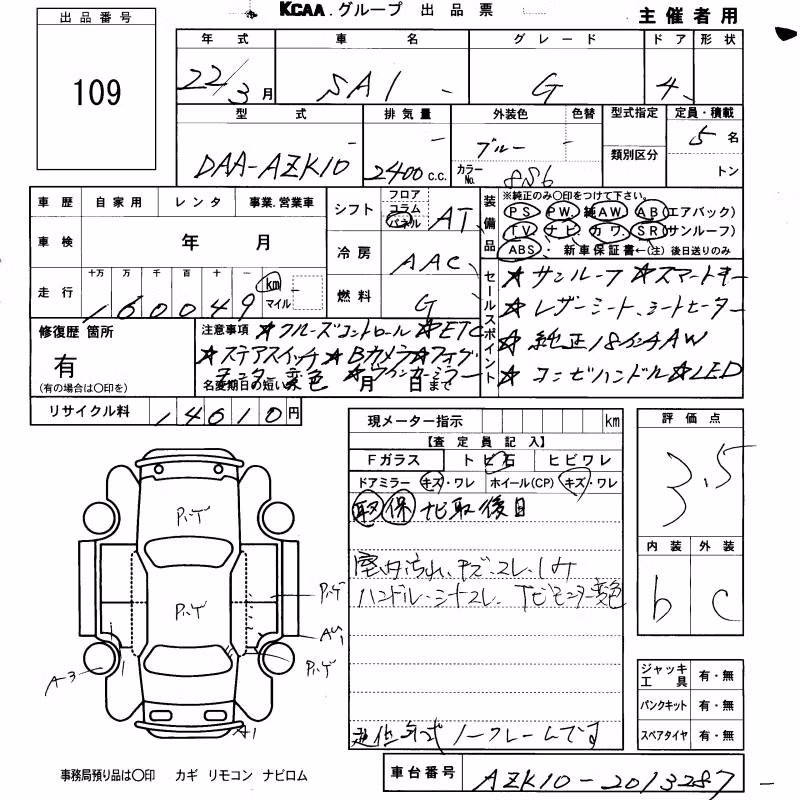 KCAA.グループ 出品票
主催者用
出品番号
109
年式 車名 グレード ドア 形状
22/3月 SAI G 4
型式 排気量 外装色 色替 型式指定 定員・積載
DAA-AZK10 2400c.c. ブルー カラーNo. 8S6 類別区分 5名 トン
車歴 自家用 レンタ 事業.営業車
車検 年 月
走行 十万 万 千 百 十 一 km マイル
160049
シフト フロア コラム パネル AT
冷房 AAC
燃料 G
装備品 ※純正のみ○印をつけて下さい。
PS PW 純AW AB(エアバック)
TV ナビ カワ SR(サンルーフ)
ABS・新車保証書←(注)後日送りのみ
セールスポイント
★サンルーフ ★スマートキー
★レザーシート、シートヒーター
★純正18インチAW
★コンビハンドル★LED
修復歴 箇所
有
(有の場合は○印を)
注意事項 ★クルーズコントロール★ETC
★ステアスイッチ★Bカメラ★フォグ・
モニター変色 ★ウインカーミラー
名変期日の短い 月 日まで
リサイクル料 14010円
現メーター指示 km
【査定員記入】
Fガラス トビ石 ヒビワレ
ドアミラー キズ・ワレ ホイール(CP) キズ・ワレ
取 保 ナビ取後日
室内汚れ、キズ・スレ・シミ
ハンドル・シートスレ、TVモニター変色
ノーフレームです
評価点
3.5
内装 外装
b c
ジャッキ工具 有・無
パンクキット 有・無
スペアタイヤ 有・無
A3
A1
事務局預り品は○印 カギ リモコン ナビロム
車台番号 AZK10-2013287